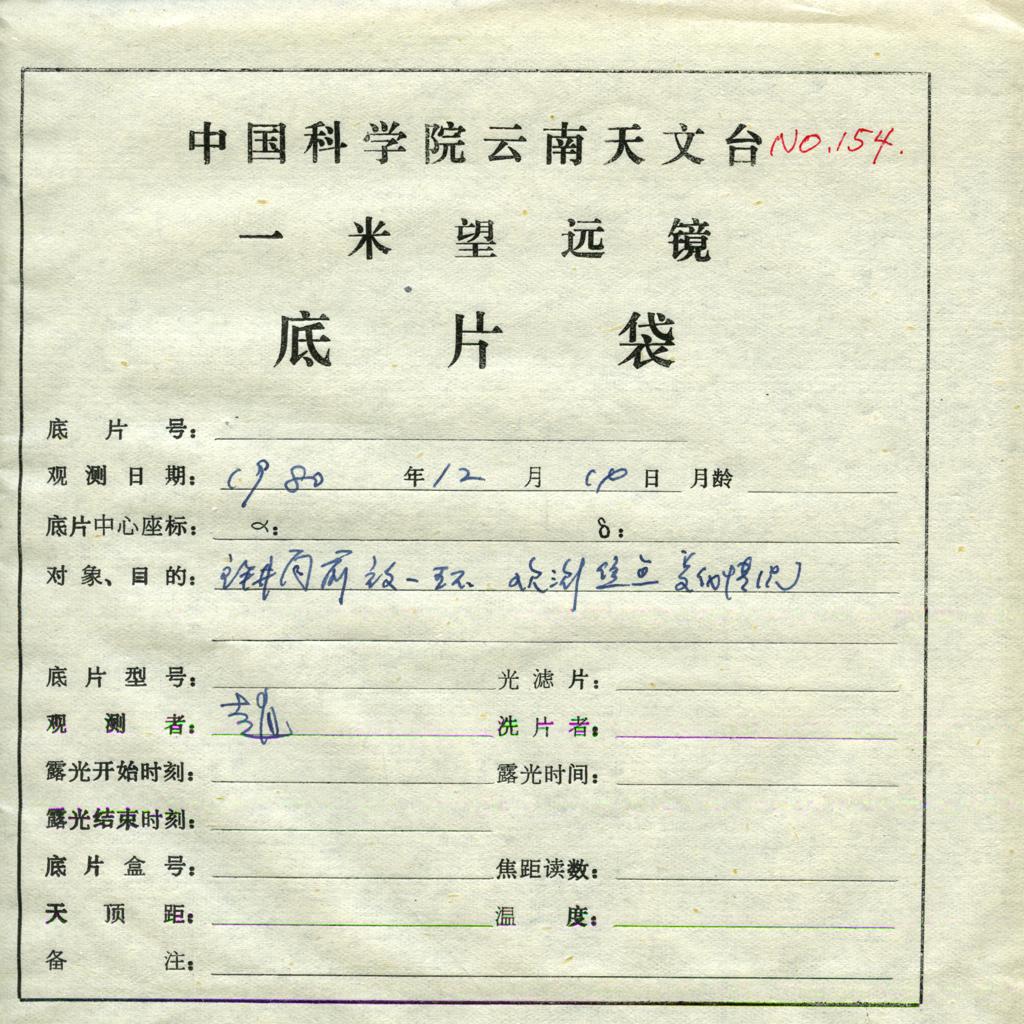 中国科学院云南天文台 NO.154.
一米望远镜
底片袋
底片号：
观测日期：1980年12月10日 月龄
底片中心座标： α： δ：
对象、目的： 前放一环 观测 情况
底片型号： 光滤片：
观测者： 洗片者：
露光开始时刻： 露光时间：
露光结束时刻：
底片盒号： 焦距读数：
天顶距： 温度：
备注：